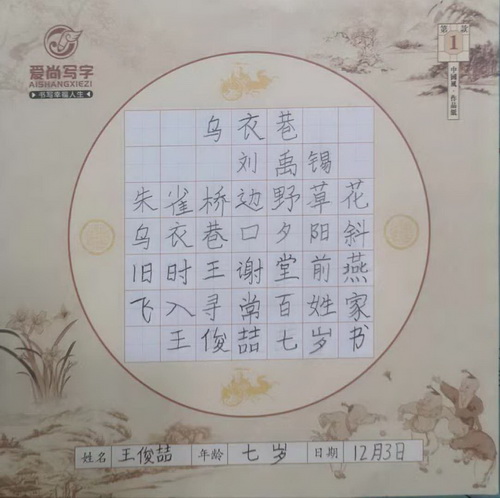 爱尚写字
AISHANGXIEZI
书写幸福人生
第一款
1
中國風·作品紙
乌衣巷
刘禹锡
朱雀桥边野草花
乌衣巷口夕阳斜
旧时王谢堂前燕
飞入寻常百姓家
王俊喆七岁书
姓名 王俊喆 年龄 七岁 日期 12月3日